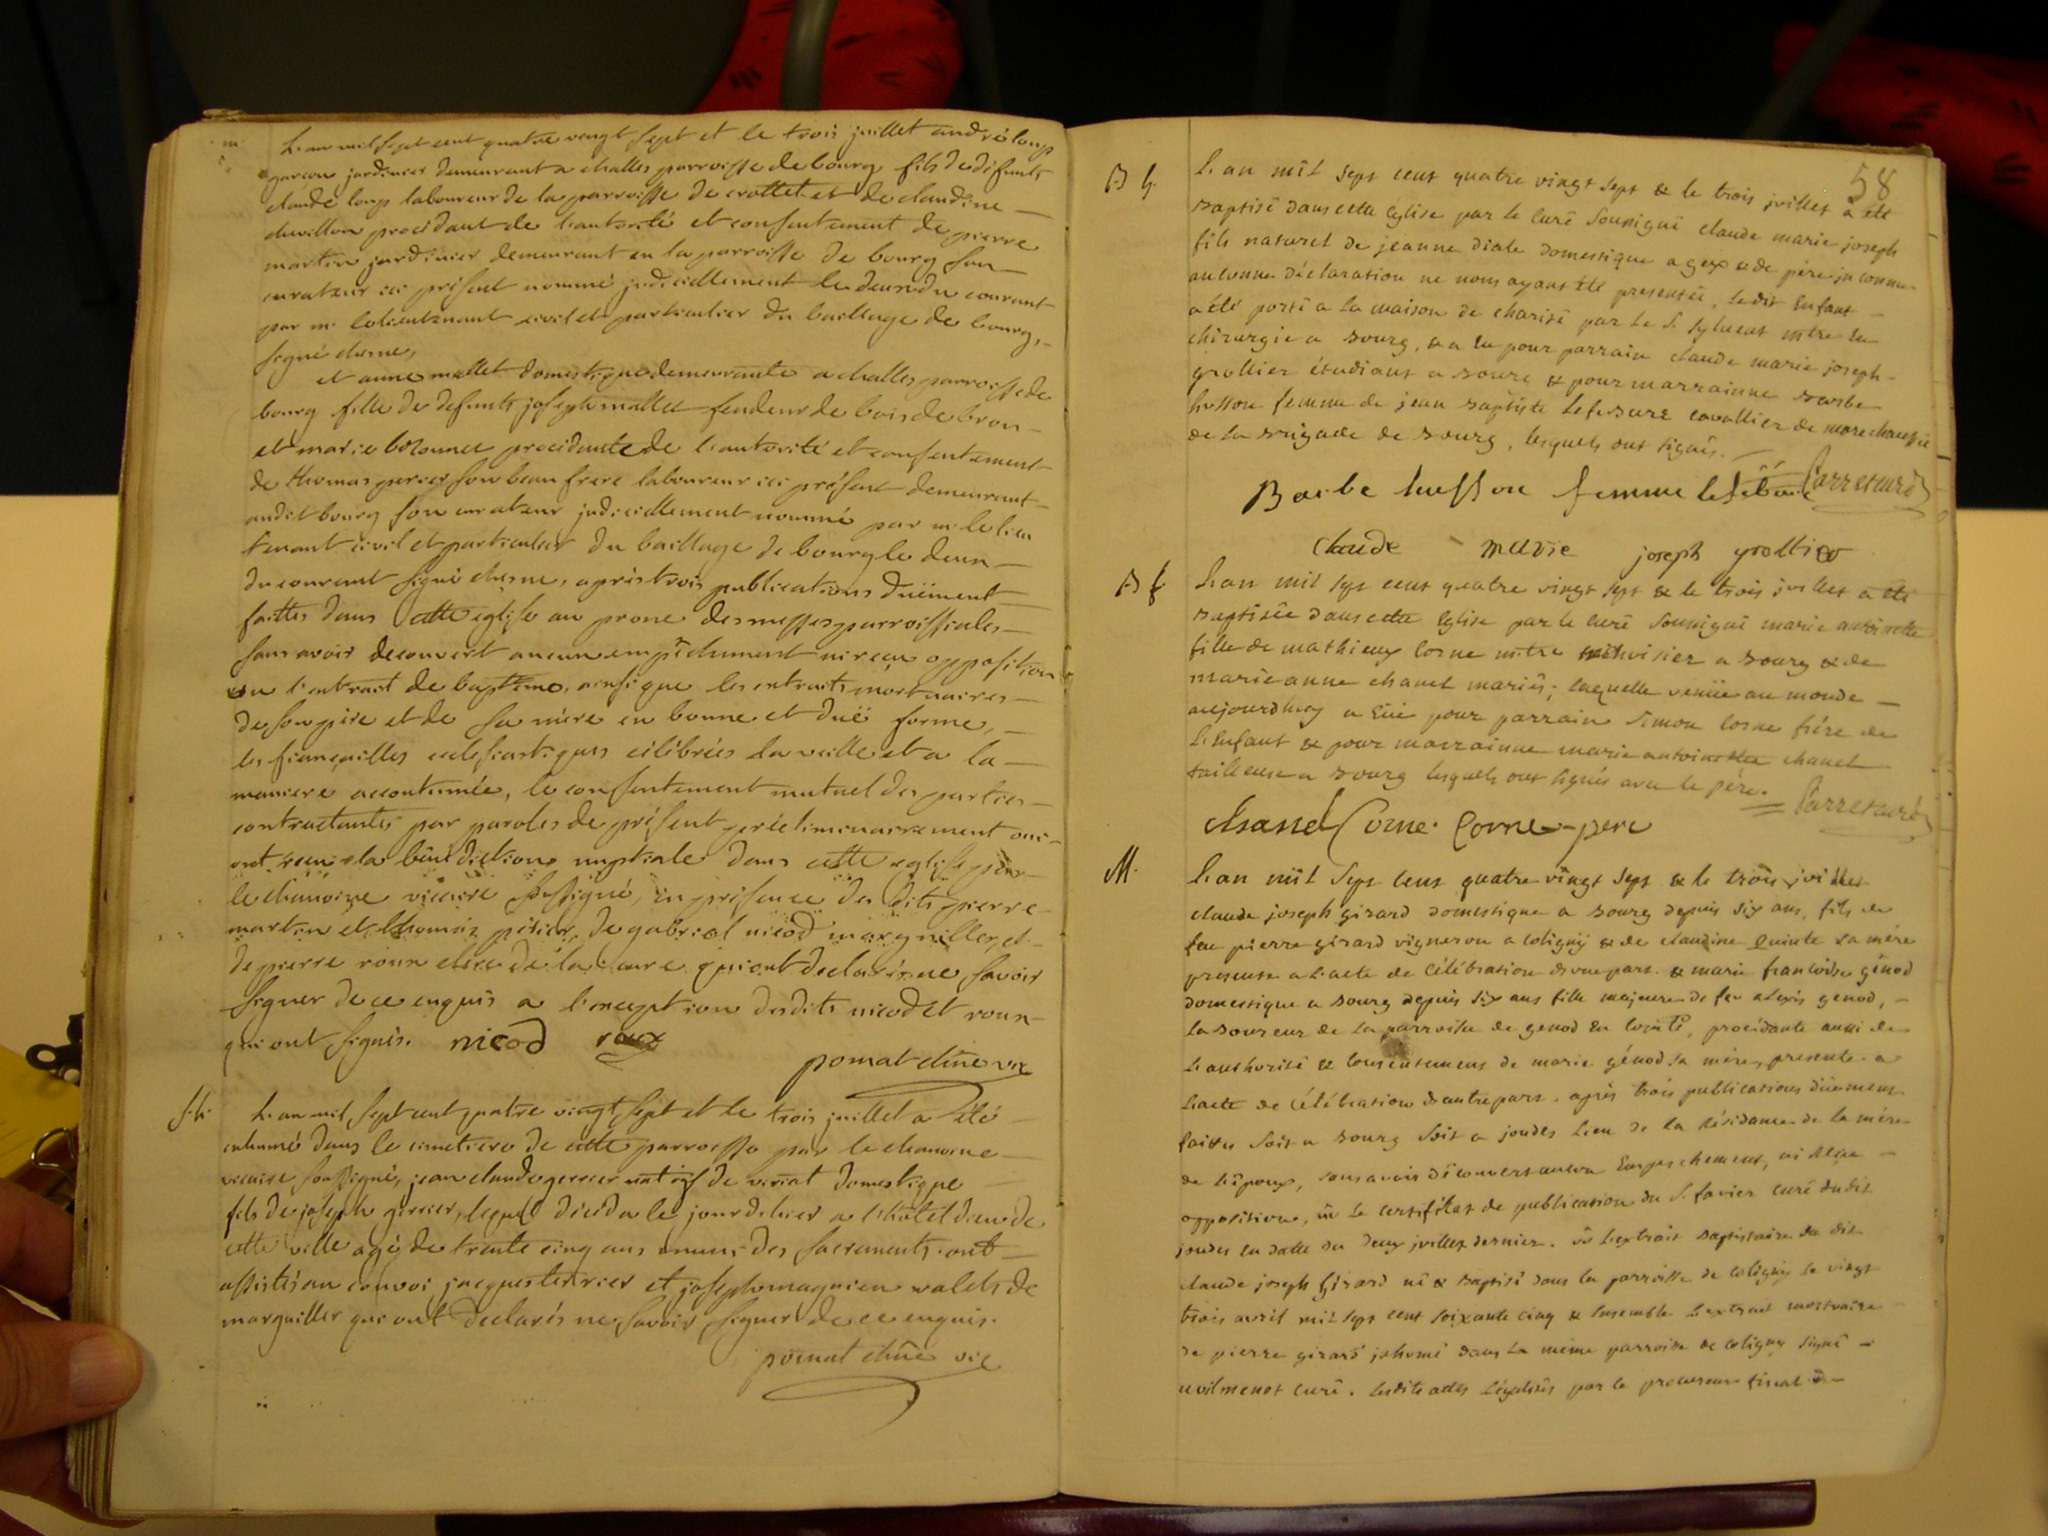 m
L'an mil sept cent quatre vingt sept et le trois juillet andré loup
garçon jardinier demeurant a challes parroisse de bourg fils de défunts
claude loup laboureur de la parroisse de crottet et de claudine
chevillon procédant de l'autorité et consentement de pierre
martin jardinier demeurant en la parroisse de bourg son
curateur ici présent nommé judiciellement le deux du courant
par m. le lieutenant civil et particulier du baillage de bourg,
signé chesne,
et anne mallet domestique demeurante a challes parroisse de
bourg fille de defunts joseph mallet fendeur de bois de brou
et marie procédante de l'autorité et consentement
de thomas perier son beau frere laboureur ici présent demeurant
audit bourg son curateur judiciellement nommé par m. le lieu
tenant civil et particulier du baillage de bourg le deux
du courant signé chesne, après trois publications duëment
faittes dans cette eglise au prone des messes parroissiales
sans avoir decouvert aucun empêchement ni reçu opposition
vu l'extrait de baptême, ainsi que les extraits mortuaires
de son père et de sa mère en bonne et duë forme,
les fiançailles célébrées la veille et a la
maniere accoutumée, le consentement mutuel des parties
contractantes par paroles de présent préliminairement oui
ont reçu la bénédiction nuptiale dans cette eglise par
le chanoine vicaire soussigné, en présence des dits pierre
martin et thomas perier, de gabriel nicod marguiller, et
de pierre roux clerc de la cure qui ont declaré ne savoir
signer de ce enquis a l'exception desdits nicod et roux
qui ont signés. nicod roux
pomat chne vic
S. h. L'an mil sept cent quatre vingt sept et le trois juillet a été
inhumé dans le cimetiere de cette parroisse par le chanoine
vicaire soussigné, jean claude perrier natif de viriat domestique
fils de joseph perrier, lequel décéda le jour d'hier a l'hôtel dieu de
cette ville agé de trente cinq ans muni des sacrements, ont
assistés au convoi jacques terrier et joseph magnien valets de
marguiller qui ont declarés ne savoir signer de ce enquis.
pomat chne vic
58
B g. L'an mil sept cent quatre vingt sept & le trois juillet a été
baptisé dans cette église par le curé soussigné claude marie joseph
fils naturel de jeanne diale domestique a gex & de père inconnu
aucune déclaration ne nous ayant été presentée, ledit enfant
a été porté a la maison de charité par le S. sylvent mtre en
chirurgie a bourg, & a eu pour parrain claude marie joseph
grollier étudiant a bourg & pour marrainne barbe
husson femme de jean baptiste lefebure cavallier de marechaussée
de la brigade de bourg, lesquels ont signés.
Barbe husson femme lefebure Parret curé
claude marie joseph grollier
B f. L'an mil sept cent quatre vingt sept & le trois juillet a été
baptisée dans cette église par le curé soussigné marie antoinette
fille de mathieu corne mtre menuisier a bourg & de
marie anne chanel mariés; laquelle venüe au monde
aujourdhuy a eüe pour parrain simon corne frére de
l'enfant & pour marrainne marie antoinette chanel
tailleuse a bourg lesquels ont signés avec le pére. Parret curé
chanel Corne. Corne pere
M. L'an mil sept cent quatre vingt sept & le trois juillet
claude joseph girard domestique a bourg depuis six ans, fils de
feu pierre girard vigneron a coligny & de claudine quinte sa mére
presente a l'acte de célébration d'une part. & marie francoise génod
domestique a bourg depuis six ans fille majeure de feu alexis génod,
laboureur de la parroisse de genod en comté, procédante aussi de
l'authorité & consentement de marie génod sa mére, presente a
l'acte de célébration d'autre part. après trois publications düement
faittes soit a bourg soit a joudes lieu de la résidance de la mére
de l'époux, sans avoir découvert aucun empeschement, ni reçu
opposition, vu le certificat de publication du S. favier curé dudit
joudes en datte du deux juillet dernier. vu l'extrait baptistaire du dit
claude joseph Girard né & baptisé dans la parroisse de coligny le vingt
trois avril mil sept cent soixante cinq & ensemble l'extrait mortuaire
de pierre girard inhumé dans la même parroisse de coligny signé
curé. lesdits actes légalisés par le procureur fiscal de